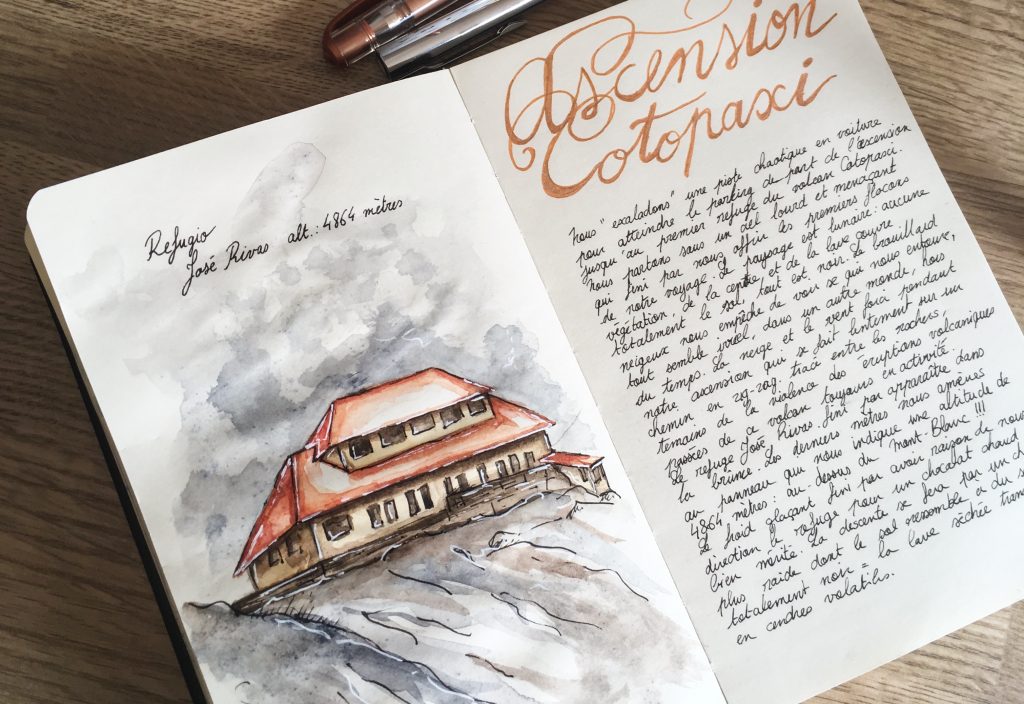 Refugio
José Rivas alt.: 4864 mètres
Ascension
Cotopaxi
Nous "escaladons" une piste chaotique en voiture
pour atteindre le parking de part de l'ascension
jusqu'au premier refuge du volcan Cotopaxi.
Nous partons sous un ciel lourd et menaçant
qui fini par nous offrir les premiers flocons
de notre voyage. Le paysage est lunaire: aucune
végétation, de la cendre et de la lave couvre
totalement le sol, tout est noir. Le brouillard
neigeux nous empêche de voir ce qui nous entoure,
tout semble irréel, dans un autre monde, hors
du temps. La neige et le vent fora pendant
notre ascension qui se fait lentement sur un
chemin en zig-zag tracé entre les rochers,
temoins de la violence des éruptions volcaniques
passées de ce volcan toujours en activité.
Le refuge José Rivas fini par apparaître dans
la brume. Les derniers mètres nous amènes
au panneau qui nous indique une altitude de
4864 mètres: au-dessus du Mont-Blanc !!!
Le froid glaçant fini par avoir raison de nous
direction le refuge pour un chocolat chaud
bien mérité. La descente se fera par un
plus raide dont le sol ressemble à du
totalement noir = la lave séchée
en cendres volatiles.